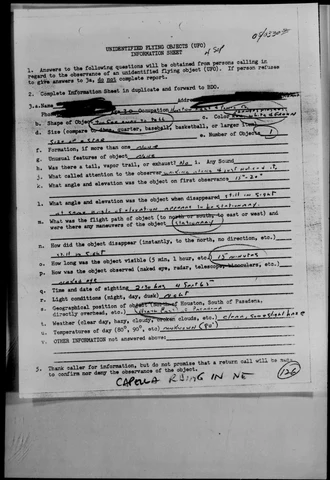 UNIDENTIFIED FLYING OBJECTS (UFO)
INFORMATION SHEET
1. Answers to the following questions will be obtained from persons calling in
regard to the observance of an unidentified flying object (UFO). If person refuses
to give answers to 3a, do not complete report.
2. Complete Information Sheet in duplicate and forward to
3.a. Name Address
Phone Occupation
b. Shape of Object Too far away to tell c. Color
d. Size (compare to dime, quarter, baseball, basketball, or larger size)
Size of a star e. Number of Objects 1
f. Formation, if more than one None
g. Unusual features of object None
h. Was there a tail, vapor trail, or exhaust? No i. Any Sound
j. What called attention to the observer walking along & just noticed it.
k. What angle and elevation was the object on first observance 15°-20°
l. What angle and elevation was the object when disappeared still in sight
at same angle of elevation appears to be stationary.
m. What was the flight path of object (to north or south, to east or west) and
were there any maneuvers of the object stationary
n. How did the object disappear (instantly, to the north, no direction, etc.)
still in sight
o. How long was the object visible (5 min, 1 hour, etc.) 15 minutes
p. How was the object observed (naked eye, radar, telescope, binoculars, etc.)
naked eye
q. Time and date of sighting 2130 hrs 4 Sept 65
r. Light conditions (night, day, dusk) Night
s. Geographical position of object (north of Houston, South of Pasadena,
directly overhead, etc.)
t. Weather (clear day, hazy, cloudy, broken clouds, etc.) clear, some slant haze
u. Temperatures of day (80°, 90°, etc.) unknown (80°)
v. OTHER INFORMATION not answered above:
5. Thank caller for information, but do not promise that a return call will be made
to confirm nor deny the observance of the object.
CAPELLA RISING IN NE
126